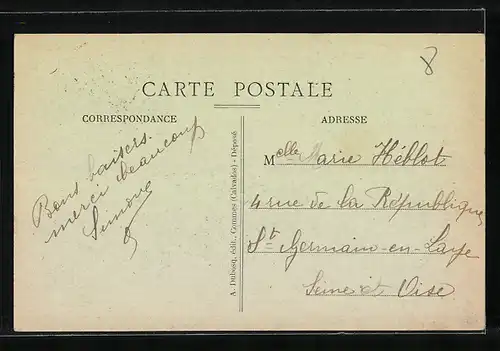 8
CARTE POSTALE
CORRESPONDANCE
ADRESSE
Bons baisers.
merci beaucoup
Simone
A. Dubosq, édit., Commes (Calvados) - Déposé
Melle Marie Héblot
4 rue de la République
St Germain-en-Laye
Seine et Oise